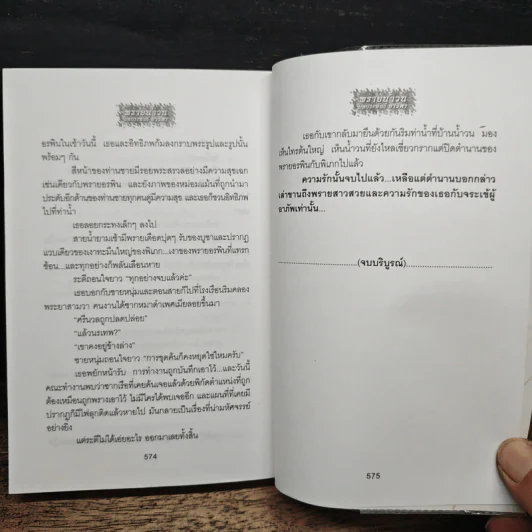 พรายน้ำวน
อรพินในเช้าวันนี้ เธอและอิทธิภพก้มลงกราบพระรูปและรูปนั้น
พร้อมๆ กัน
สีหน้าของท่านชายมีรอยพระสรวลอย่างมีความสุขเฉก
เช่นเดียวกับพรายอรพิน และยังภาพของหม่อมแม้นที่ถูกนำมา
ประดับอีกด้านของท่านชายทุกคนดูมีความสุข และเธอก็ชวนอิทธิภพ
ไปที่ท่าน้ำ
เธอลอยกระทงเล็กๆ ลงไป
สายน้ำยามเช้ามีพรายเดือดปุดๆ รับของบูชาและปรากฏ
แวบเดียวของเงาทะมึนใหญ่ของพิภภ...เงาของพรายอรพินที่แทรก
ซ้อน...และทุกอย่างก็พลันเลือนหาย
ระตีถอนใจยาว "ทุกอย่างจบแล้วค่ะ"
เธอบอกกับชายหนุ่มและตอนสายก็ไปที่โรงเรือนริมคลอง
พระยาสามวา คนงานได้ซากหมาดำเพศเมียลอยขึ้นมา
"ศรีนวลถูกปลดปล่อย"
"แล้วนรเทพ?"
"เขาคงอยู่ข้างล่าง"
ชายหนุ่มถอนใจยาว "การขุดค้นก็คงหยุดใช่ไหมครับ"
เธอพยักหน้ารับ การทำงานถูกบันทึกเอาไว้...และวันนี้
คณะทำงานพบว่าซากเรือที่เคยค้นเจอแล้วด้วยพิกัดตำแหน่งที่ถูก
ต้องเหมือนถูกพรางเอาไว้ ไม่มีใครได้พบเจออีก และแผนที่ที่เคยมี
ปรากฏก็มีไฟลุกติดแล้วหายไป มันกลายเป็นเรื่องที่น่ามหัศจรรย์
อย่างยิ่ง
แต่ระตีไม่ได้เอ่ยอะไร ออกมาเลยทั้งสิ้น
574
พรายน้ำวน
เธอกับเขากลับมายืนด้วยกันริมท่าน้ำที่บ้านน้ำวน มอง
เห็นไทรต้นใหญ่ เห็นน้ำวนที่ยังไหลเชี่ยวกรากแต่ปิดตำนานของ
พรายอรพินกับพิภภไปแล้ว
ความรักนั้นจบไปแล้ว...เหลือแต่ตำนานบอกกล่าว
เล่าขานถึงพรายสาวสวยและความรักของเธอกับจระเข้ผู้
อาภัพเท่านั้น...
..............................(จบบริบูรณ์)..............................
575